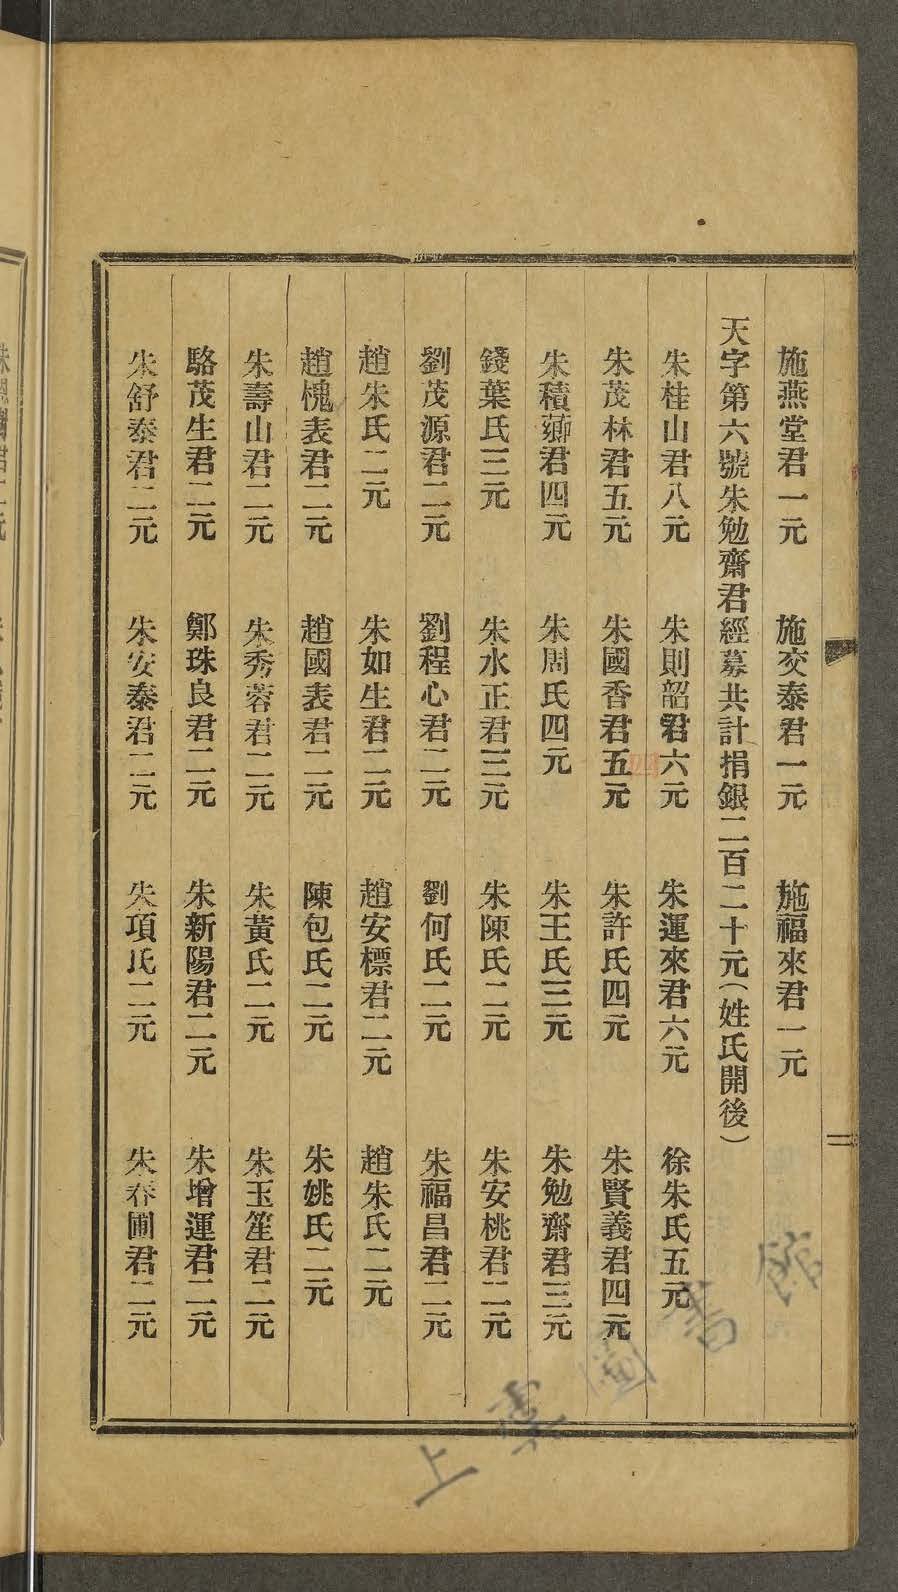 施燕堂君一元　施交泰君一元　施福來君一元
天字第六號朱勉齋君經募共計捐銀二百二十元（姓氏開後）
朱桂山君八元　朱則韶君六元　朱運來君六元　徐朱氏五元
朱茂林君五元　朱國香君五元　朱許氏四元　朱賢義君四元
朱積薌君四元　朱周氏四元　朱王氏三元　朱勉齋君三元
錢葉氏三元　朱水正君三元　朱陳氏二元　朱安桃君二元
劉茂源君二元　劉程心君二元　劉何氏二元　朱福昌君二元
趙朱氏二元　朱如生君二元　趙安標君二元　趙朱氏二元
趙槐表君二元　趙國表君二元　陳包氏二元　朱姚氏二元
朱壽山君二元　朱秀蓉君二元　朱黃氏二元　朱玉笙君二元
駱茂生君二元　鄭珠良君二元　朱新陽君二元　朱增運君二元
朱舒泰君二元　朱安泰君二元　朱項氏二元　朱春圃君二元
四
二
上虞圖書館